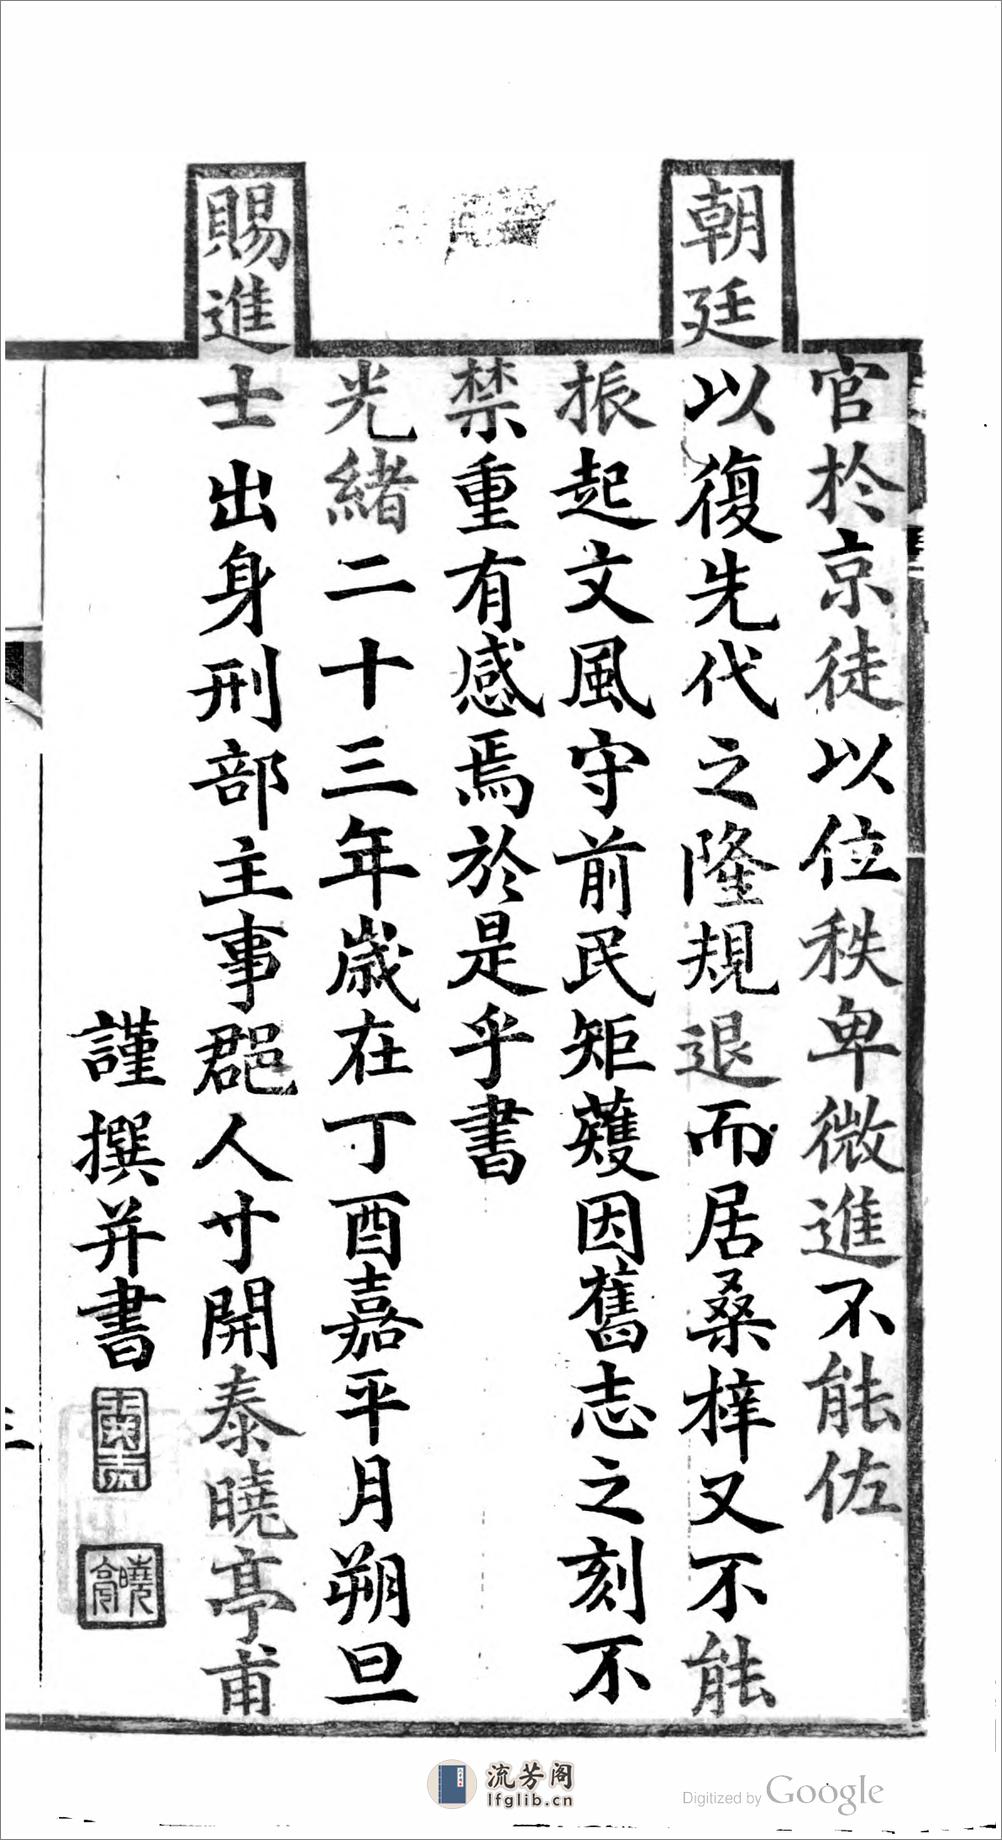 官於京徒以位秩卑微進不能佐
朝廷以復先代之隆規退而居桑梓又不能
振起文風守前民矩矱因舊志之刻不
禁重有感焉於是乎書
光緒二十三年歲在丁酉嘉平月朔旦
賜進士出身刑部主事郡人寸開泰曉亭甫
謹撰并書
曉亭
流芳阁
lfglib.cn
Digitized by Google